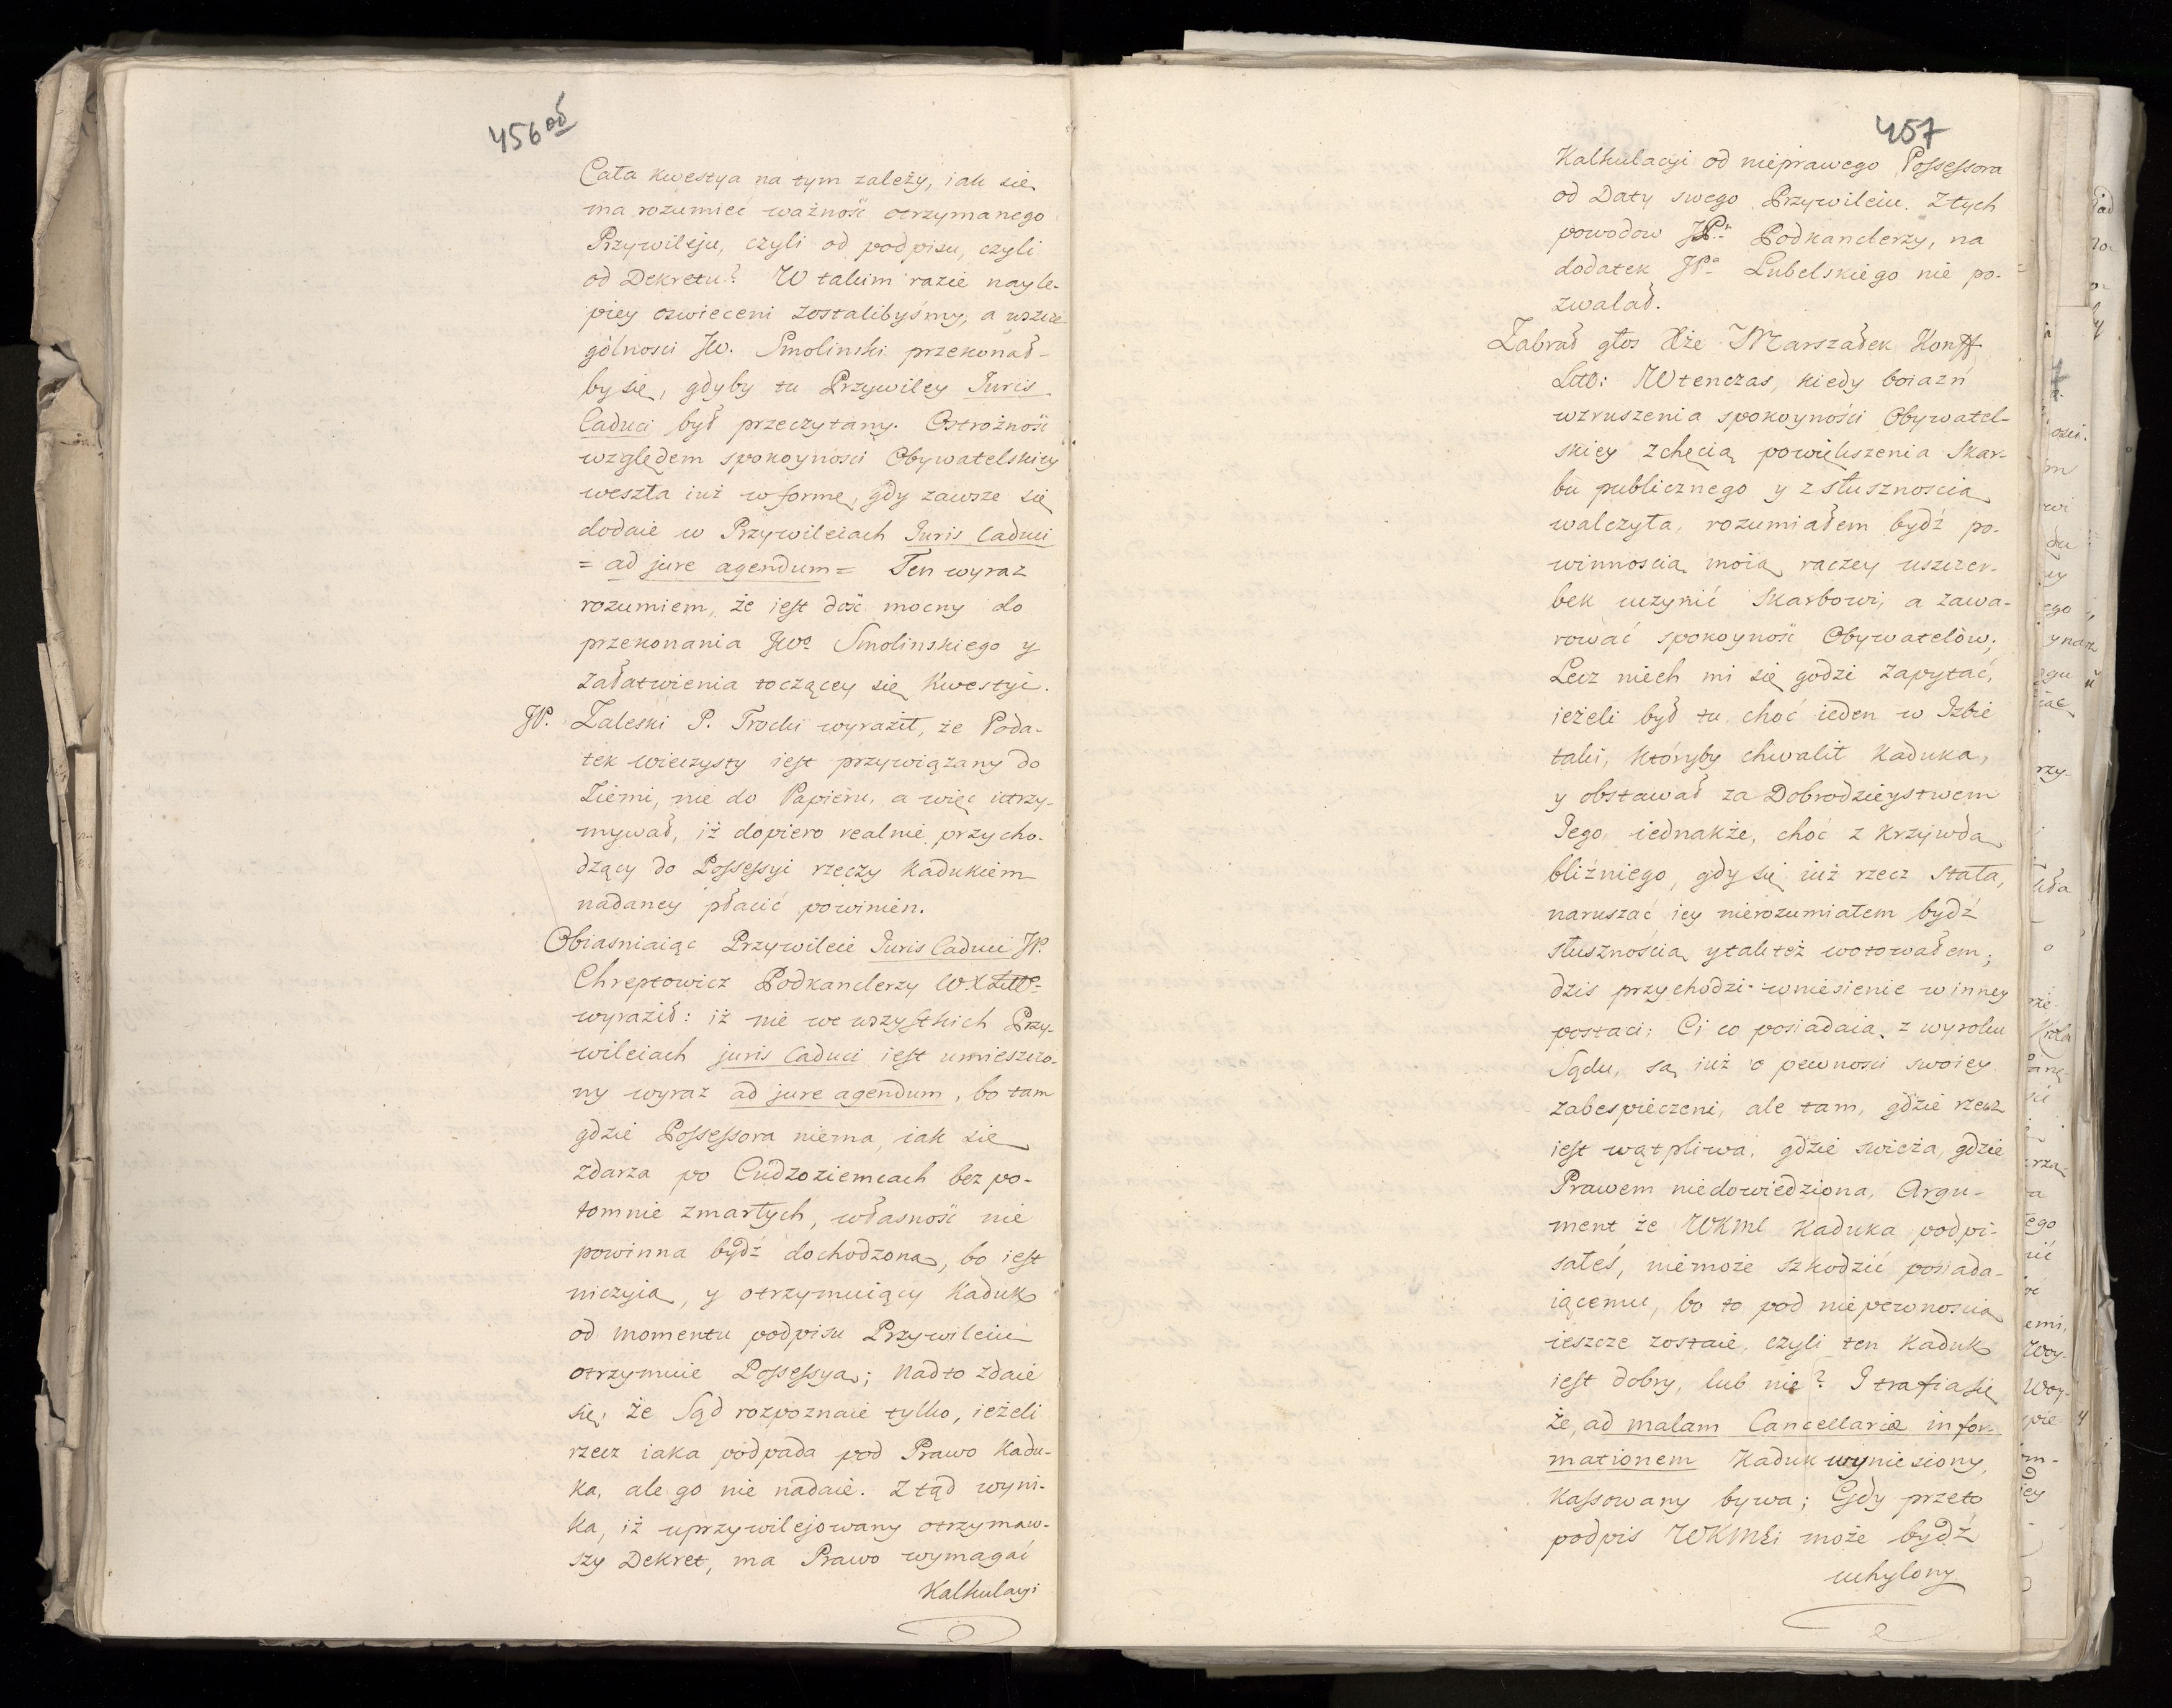 456 об
Cała kwestya na tym zależy, iak się
ma rozumieć ważność otrzymanego
Przywileju, czyli od podpisu, czyli
od Dekretu? W takim razie nayle-
piey oswieceni zostalibyśmy, a wszcze-
gólnosci JW. Smolinski przekonał-
by się, gdyby tu Przywiley Juris
Caduci był przeczytany. Ostrożność
względem spokoyności Obywatelskiey
weszła iuż w formę, gdy zawsze się
dodaie w Przywileiach Juris Caduci
= ad jure agendum = Ten wyraz
rozumiem, że iest dość mocny do
przekonania JWo Smolinskiego y
załatwienia toczącey się Kwestyi.
JP. Zaleski P. Trocki wyraził, że Poda-
tek wieczysty iest przywiązany do
Ziemi, nie do Papieru, a więc utrzy-
mywał, iż dopiero realnie przycho-
dzący do Possessyi rzeczy Kadukiem
nadaney płacić powinien.
Obiasniaiąc Przywileie Juris Caduci JP.
Chreptowicz Podkanclerzy W.X Litt
wyraził: iż nie we wszystkich Przy-
wileiach juris Caduci iest umieszczo-
ny wyraz ad jure agendum, bo tam
gdzie Possessora niema, iak się
zdarza po Cudzoziemcach bez po-
tomnie zmarłych, własność nie
powinna bydź dochodzoną, bo iest
niczyią, y otrzymuiący Kaduk
od momentu podpisu Przywileiu
otrzymuie Possessyą; nadto zdaie
się, że Sąd rozpoznaie tylko, ieżeli
rzecz iaka podpada pod Prawo Kadu-
ka, ale go nie nadaie. Ztąd wyni-
ka, iż uprzywilejowany otrzymaw-
szy Dekret, ma Prawo wymagać
Kalkulacyi
457
Kalkulacyi od nieprawego Possessora
od Daty swego Przywileiu. Z tych
powodow JPn Podkanclerzy, na
dodatek JPa Lubelskiego nie po-
zwalał.
Zabrał głos Xże Marszałek Konff
Litt: Wtenczas, kiedy boiazń
wzruszenia spokoyności Obywatel-
skiey z chęcią powiększenia Skar-
bu publicznego y z słusznoscią
walczyła, rozumiałem bydź po-
winnoscią moią raczey uszczer-
bek uczynić Skarbowi, a zawa-
rować spokoyność Obywatelów;
Lecz niech mi się godzi zapytać,
ieżeli był tu choć ieden w Izbie
taki, któryby chwalił Kaduka,
y obstawał za Dobrodzieystwem
Jego iednakże, choć z krzywdą
bliźniego, gdy się iuż rzecz stała,
naruszać iey nierozumiałem bydź
słusznością y tak też wotowałem;
dzis przychodzi wniesienie w inney
postaci; Ci co posiadaią z wyroku
Sądu, są iuż o pewnosci swoiey
zabespieczeni, ale tam, gdzie rzecz
iest wątpliwa, gdzie swieża, gdzie
Prawem niedowiedziona, Argu-
ment że WKMć Kaduka podpi-
sałeś, niemoże szkodzić posiada-
iącemu, bo to pod niepewnoscią
ieszcze zostaie, czyli ten Kaduk
iest dobry, lub nie? I trafia się
że, ad malam Cancellariæ infor-
mationem Kaduk wyniesiony,
kassowany bywa; Gdy przeto
podpis WKMći może bydź
uchylony